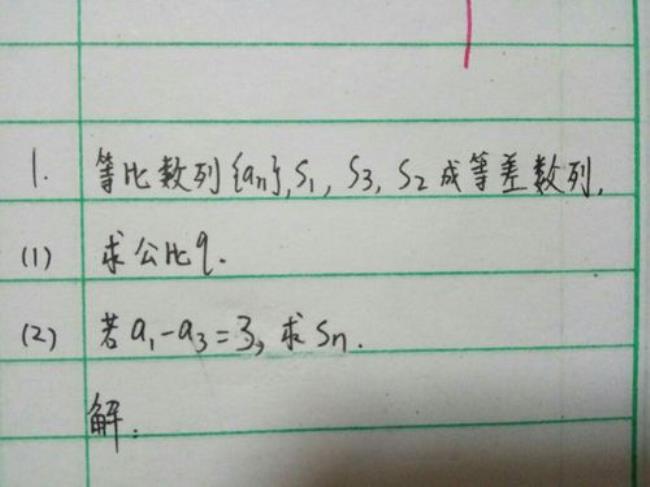 1. 等比数列{an},S1, S3, S2 成等差数列,
(1) 求公比q.
(2) 若a1-a3=3, 求Sn.
解: